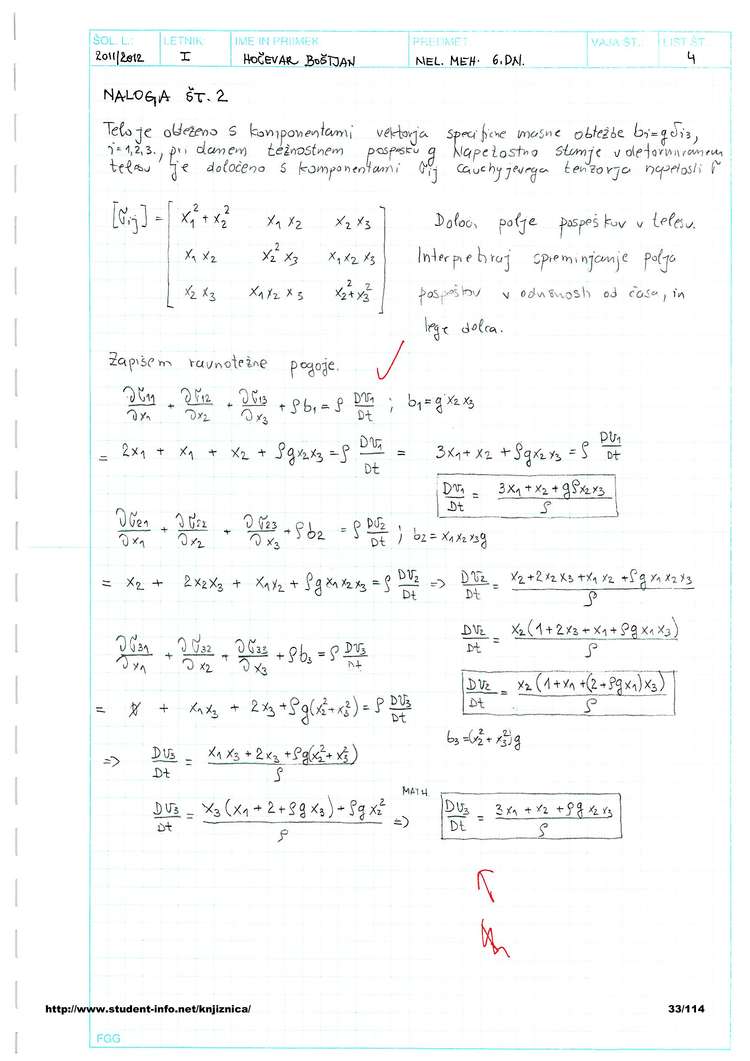 ŠOL. L.: LETNIK IME IN PRIIMEK PREDMET VAJA ŠT. LIST ŠT.
2011/2012 I HOČEVAR BOŠTJAN NEL. MEH. 6.DN. 4
NALOGA ŠT. 2
Telo je obteženo s komponentami vektorja specifične masne obtežbe bi = g δi3,
i=1,2,3., pri danem težnostnem pospešku g Napetostno stanje v deformiranem
telesu je določeno s komponentami σij Cauchyjevega tenzorja napetosti σ
[σij] = [ x1² + x2² x1 x2 x2 x3
x1 x2 x2² x3 x1 x2 x3
x2 x3 x1 x2 x3 x2² + x3² ]
Določi polje pospeškov v telesu.
Interpretiraj spreminjanje polja
pospeškov v odvisnosti od časa, in
lege delca.
Zapišem ravnotežne pogoje.
∂σ11/∂x1 + ∂σ12/∂x2 + ∂σ13/∂x3 + ρb1 = ρ Dv1/Dt ; b1 = g x2 x3
= 2x1 + x1 + x2 + ρg x2 x3 = ρ Dv1/Dt = 3x1 + x2 + ρg x2 x3 = ρ Dv1/Dt
Dv1/Dt = (3x1 + x2 + gρ x2 x3)/ρ
∂σ21/∂x1 + ∂σ22/∂x2 + ∂σ23/∂x3 + ρb2 = ρ Dv2/Dt ; b2 = x1 x2 x3 g
= x2 + 2x2x3 + x1x2 + ρg x1 x2 x3 = ρ Dv2/Dt => Dv2/Dt = (x2 + 2x2x3 + x1x2 + ρg x1 x2 x3)/ρ
Dv2/Dt = x2(1 + 2x3 + x1 + ρg x1 x3)/ρ
∂σ31/∂x1 + ∂σ32/∂x2 + ∂σ33/∂x3 + ρb3 = ρ Dv3/Dt
Dv2/Dt = x2(1 + x1 + (2 + ρg x1) x3)/ρ
= 0 + x1x3 + 2x3 + ρg(x2² + x3²) = ρ Dv3/Dt
b3 = (x2² + x3²)g
=> Dv3/Dt = (x1x3 + 2x3 + ρg(x2² + x3²))/ρ
Dv3/Dt = (x3(x1 + 2 + ρg x3) + ρg x2²)/ρ MATH. => Dv3/Dt = (3x1 + x2 + ρg x2 x3)/ρ
http://www.student-info.net/knjiznica/ 33/114
FGG